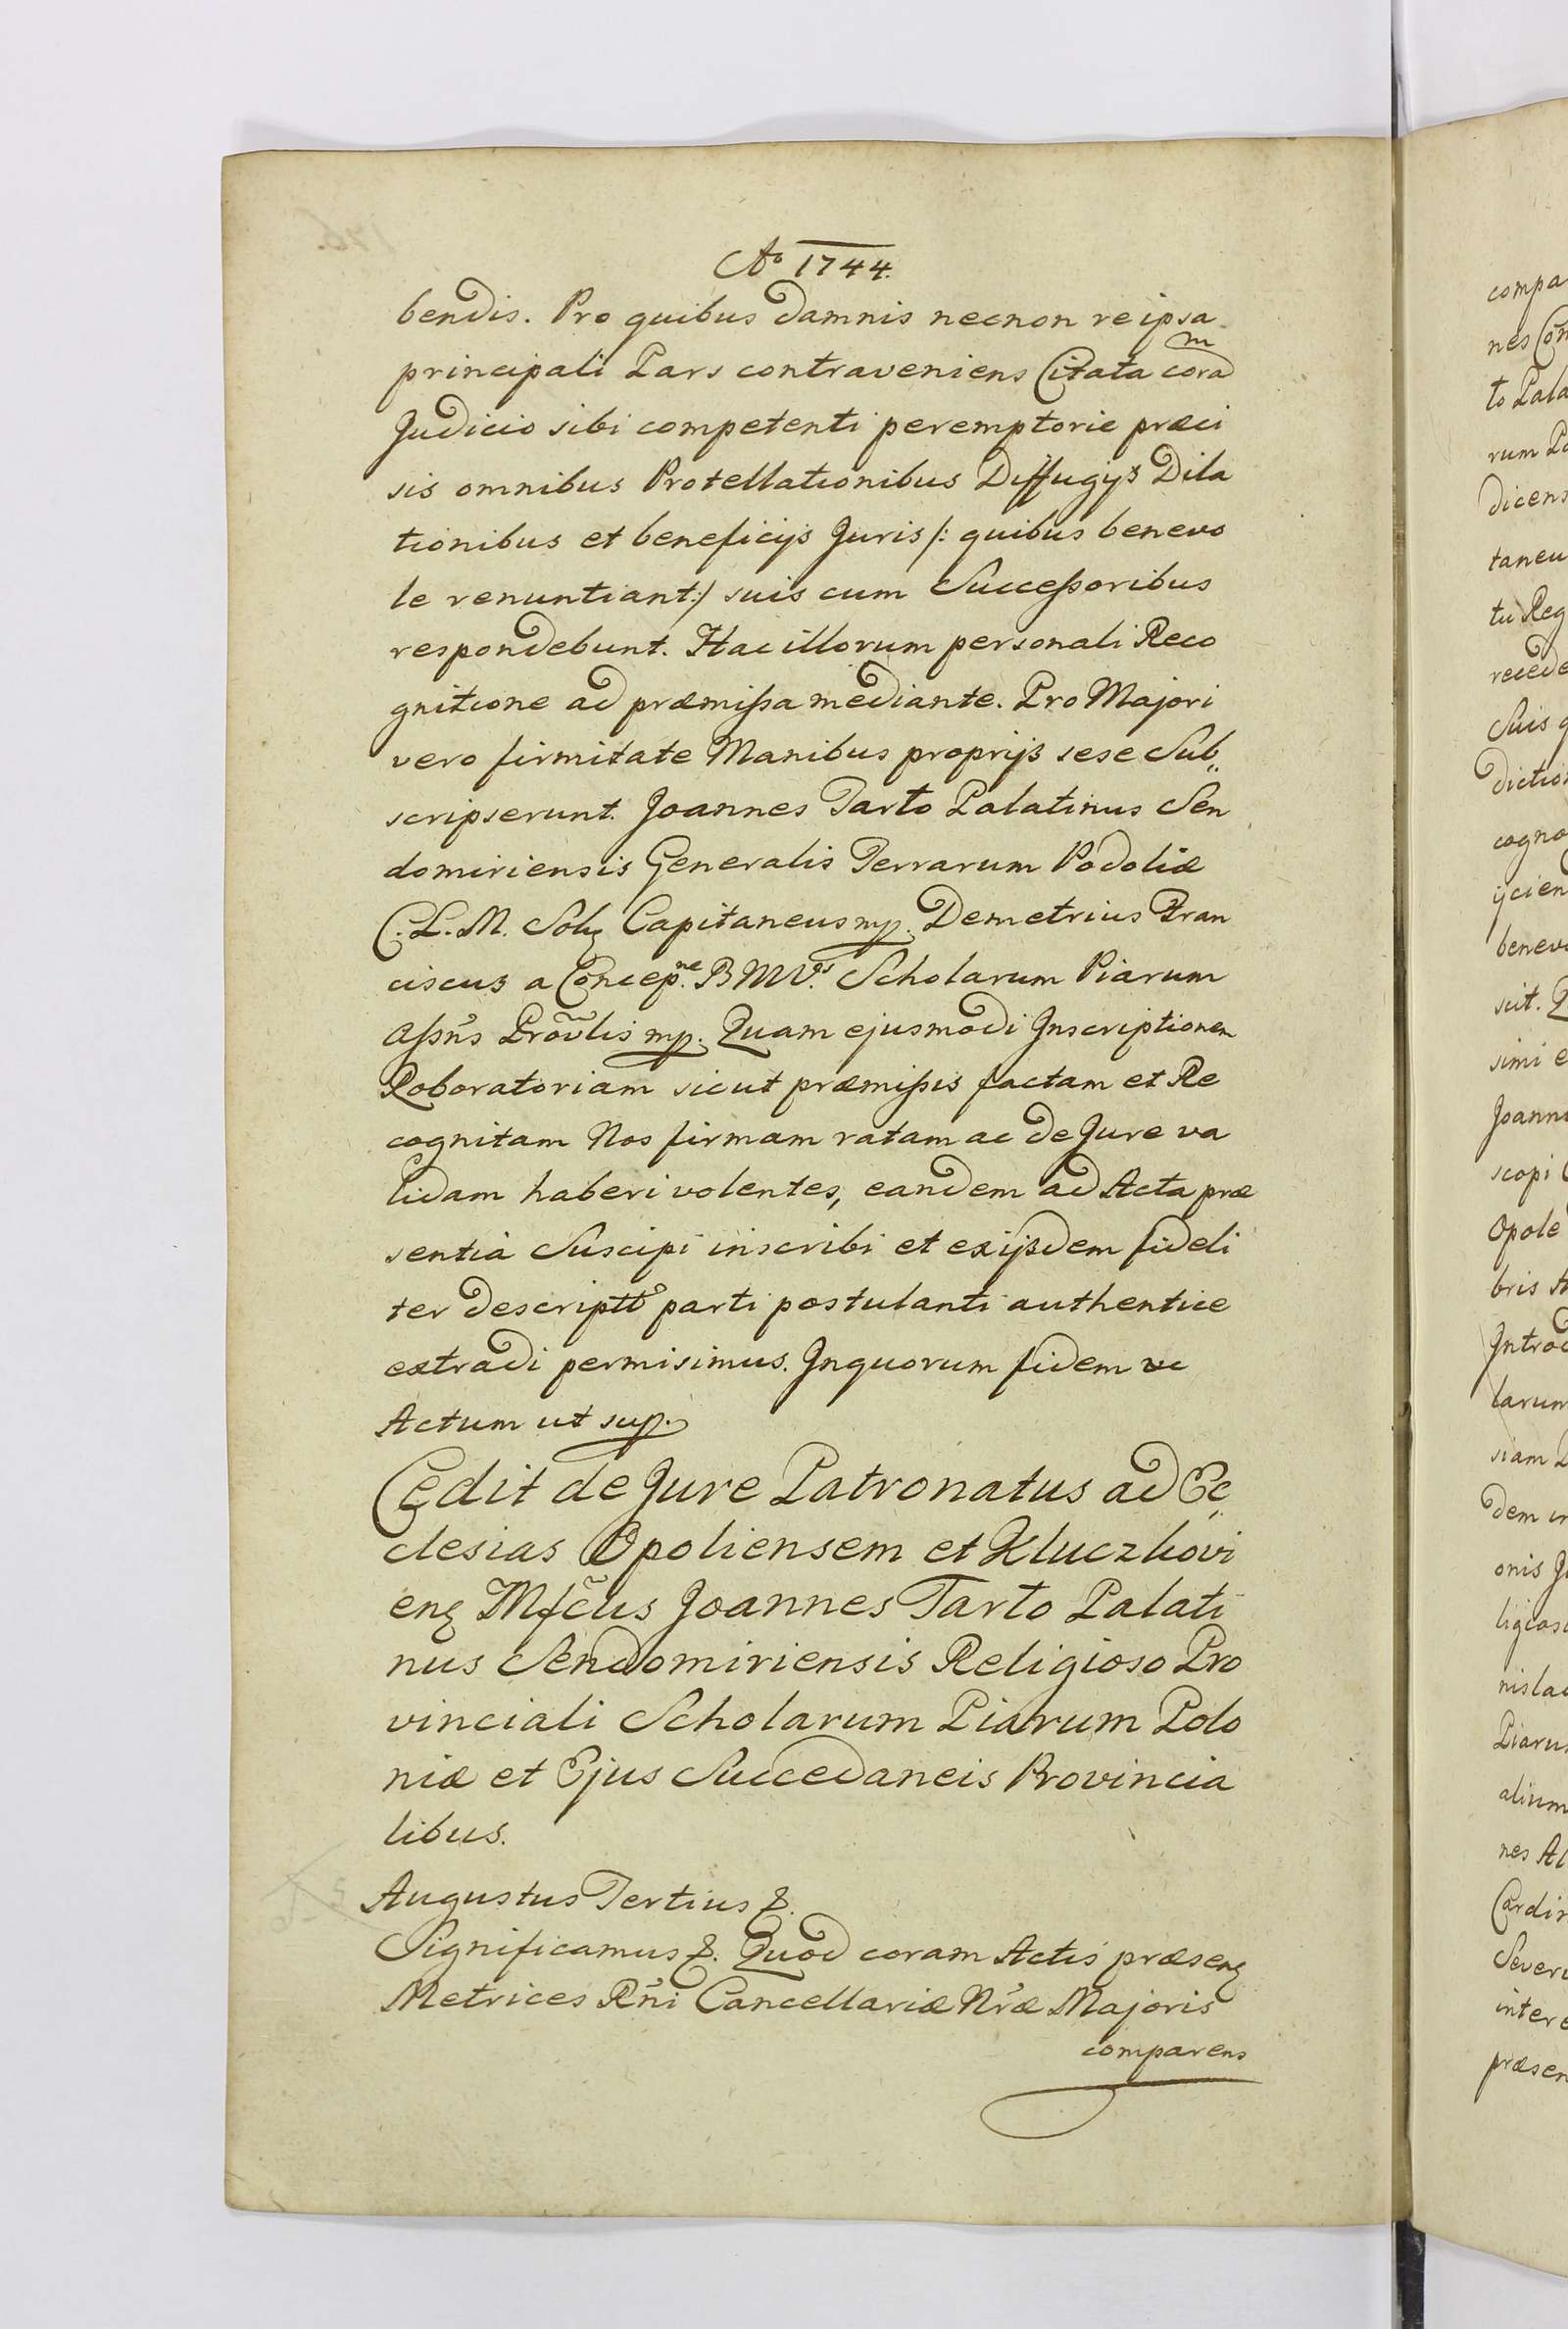 Ao 1744.
bendis. Pro quibus damnis necnon re ipsa
principali Pars contraveniens Citata coram
Judicio sibi competenti peremptorie præci
sis omnibus Protellationibus Diffugijs Dila
tionibus et beneficijs Juris /: quibus benevo
le renuntiant :/ suis cum Successoribus
respondebunt. Hac illorum personali Reco
gnitione ad præmissa mediante. Pro Majori
vero firmitate Manibus proprijs sese Sub„
scripserunt. Joannes Tarło Palatinus Sen
domiriensis Generalis Terrarum Podoliæ
C. L. M. Solq Capitaneus mp. Demetrius Fran
ciscus a Concepne. BMVis. Scholarum Piarum
Assñs Prov̄lis mp. Quam ejusmodi Inscriptionem
Roboratoriam sicut præmissis factam et Re
cognitam Nos firmam ratam ac de Jure va
lidam haberi volentes, eandem ad Acta præ
sentia Suscipi inscribi et ex ijsdem fideli
ter descriptt parti postulanti authentice
extradi permisimus. In quorum fidem
Actum ut sup.
Cedit de Jure Patronatus ad Ec„
clesias Opoliensem et Kluczkovi
enq Mfc̃us Joannes Tarło Palati
nus Sendomiriensis Religioso Pro
vinciali Scholarum Piarum Polo
niæ et Ejus Succedaneis Provincia
libus.
Augustus Tertius &.
Significamus &. Quod coram Actis præsenq
Metrices Rñi Cancellariæ Nræ Majoris
comparens
compa
nes Con
to Pala
rum Pa
dicens
taneu
tu Reg
recede
Suis q
dictio
cogno
ijcien
benevo
scit. Q
simi e
Joanne
scopi
Opole
bris
Introd
larum
siam
dem in
onis Ju
ligios
nislau
Piaru
alium
nes Al
Cardin
Severi
intere
præsen